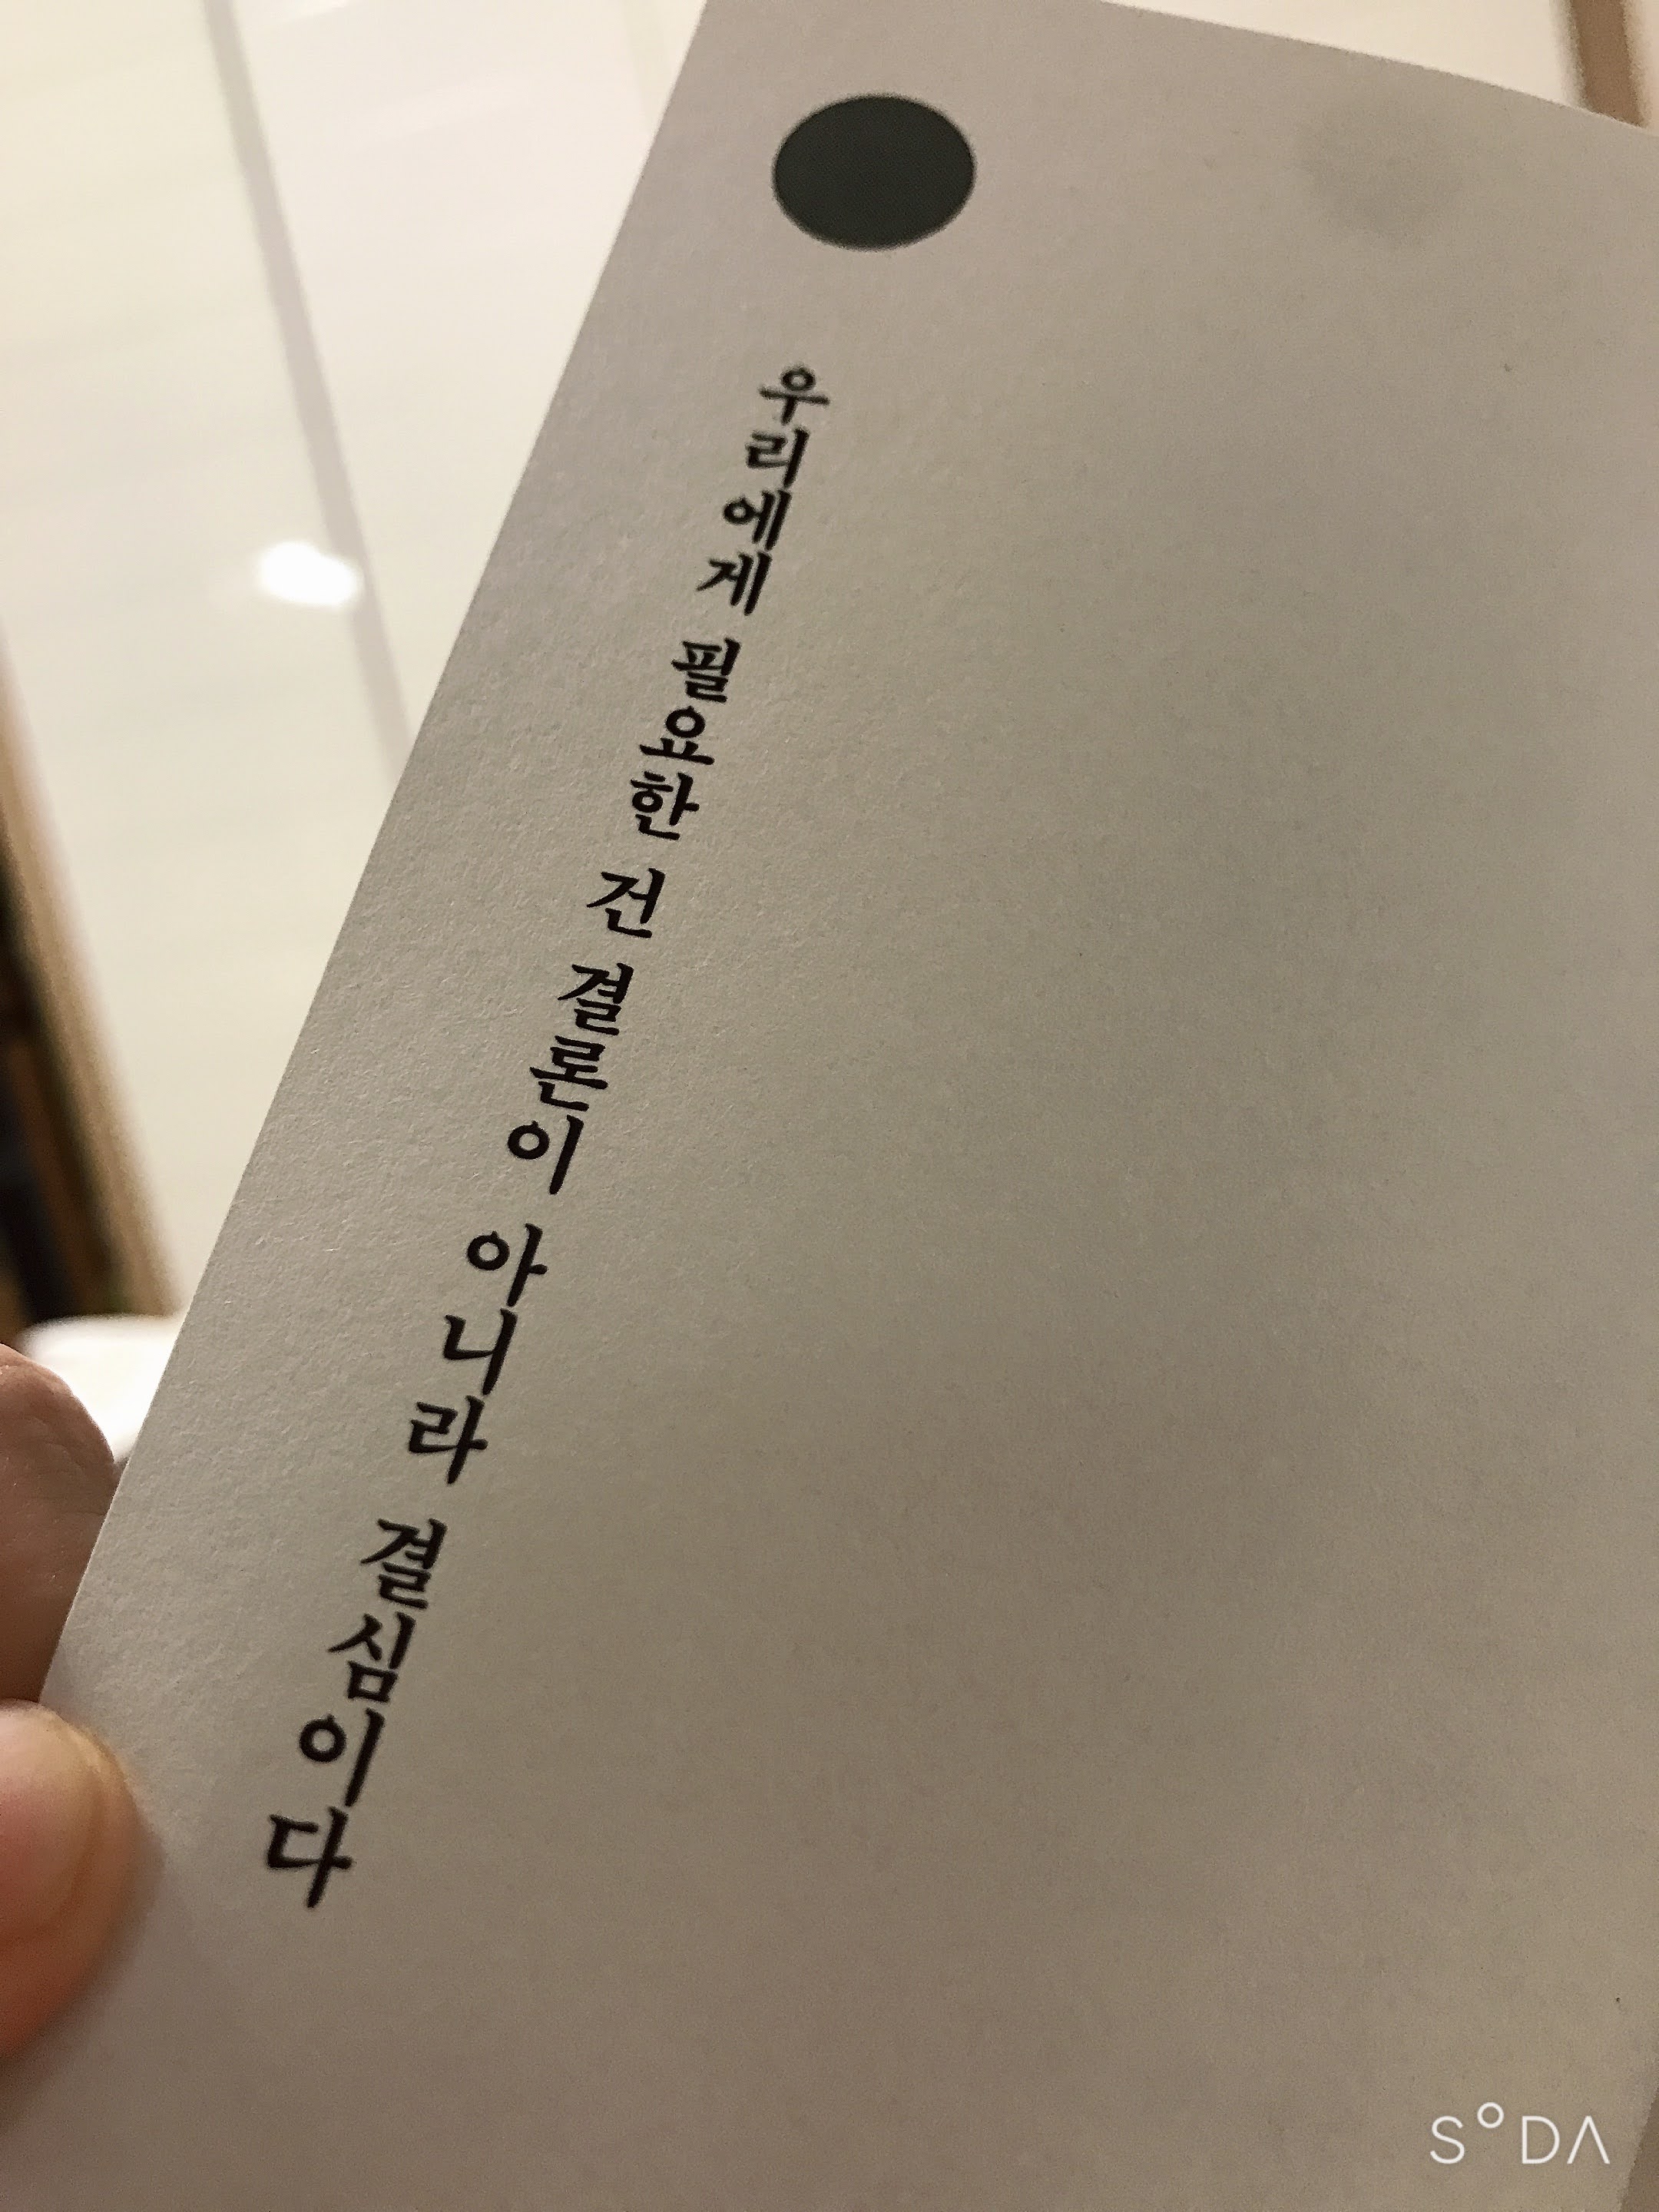 우리에게 필요한 건 결론이 아니라 결심이다
SODA